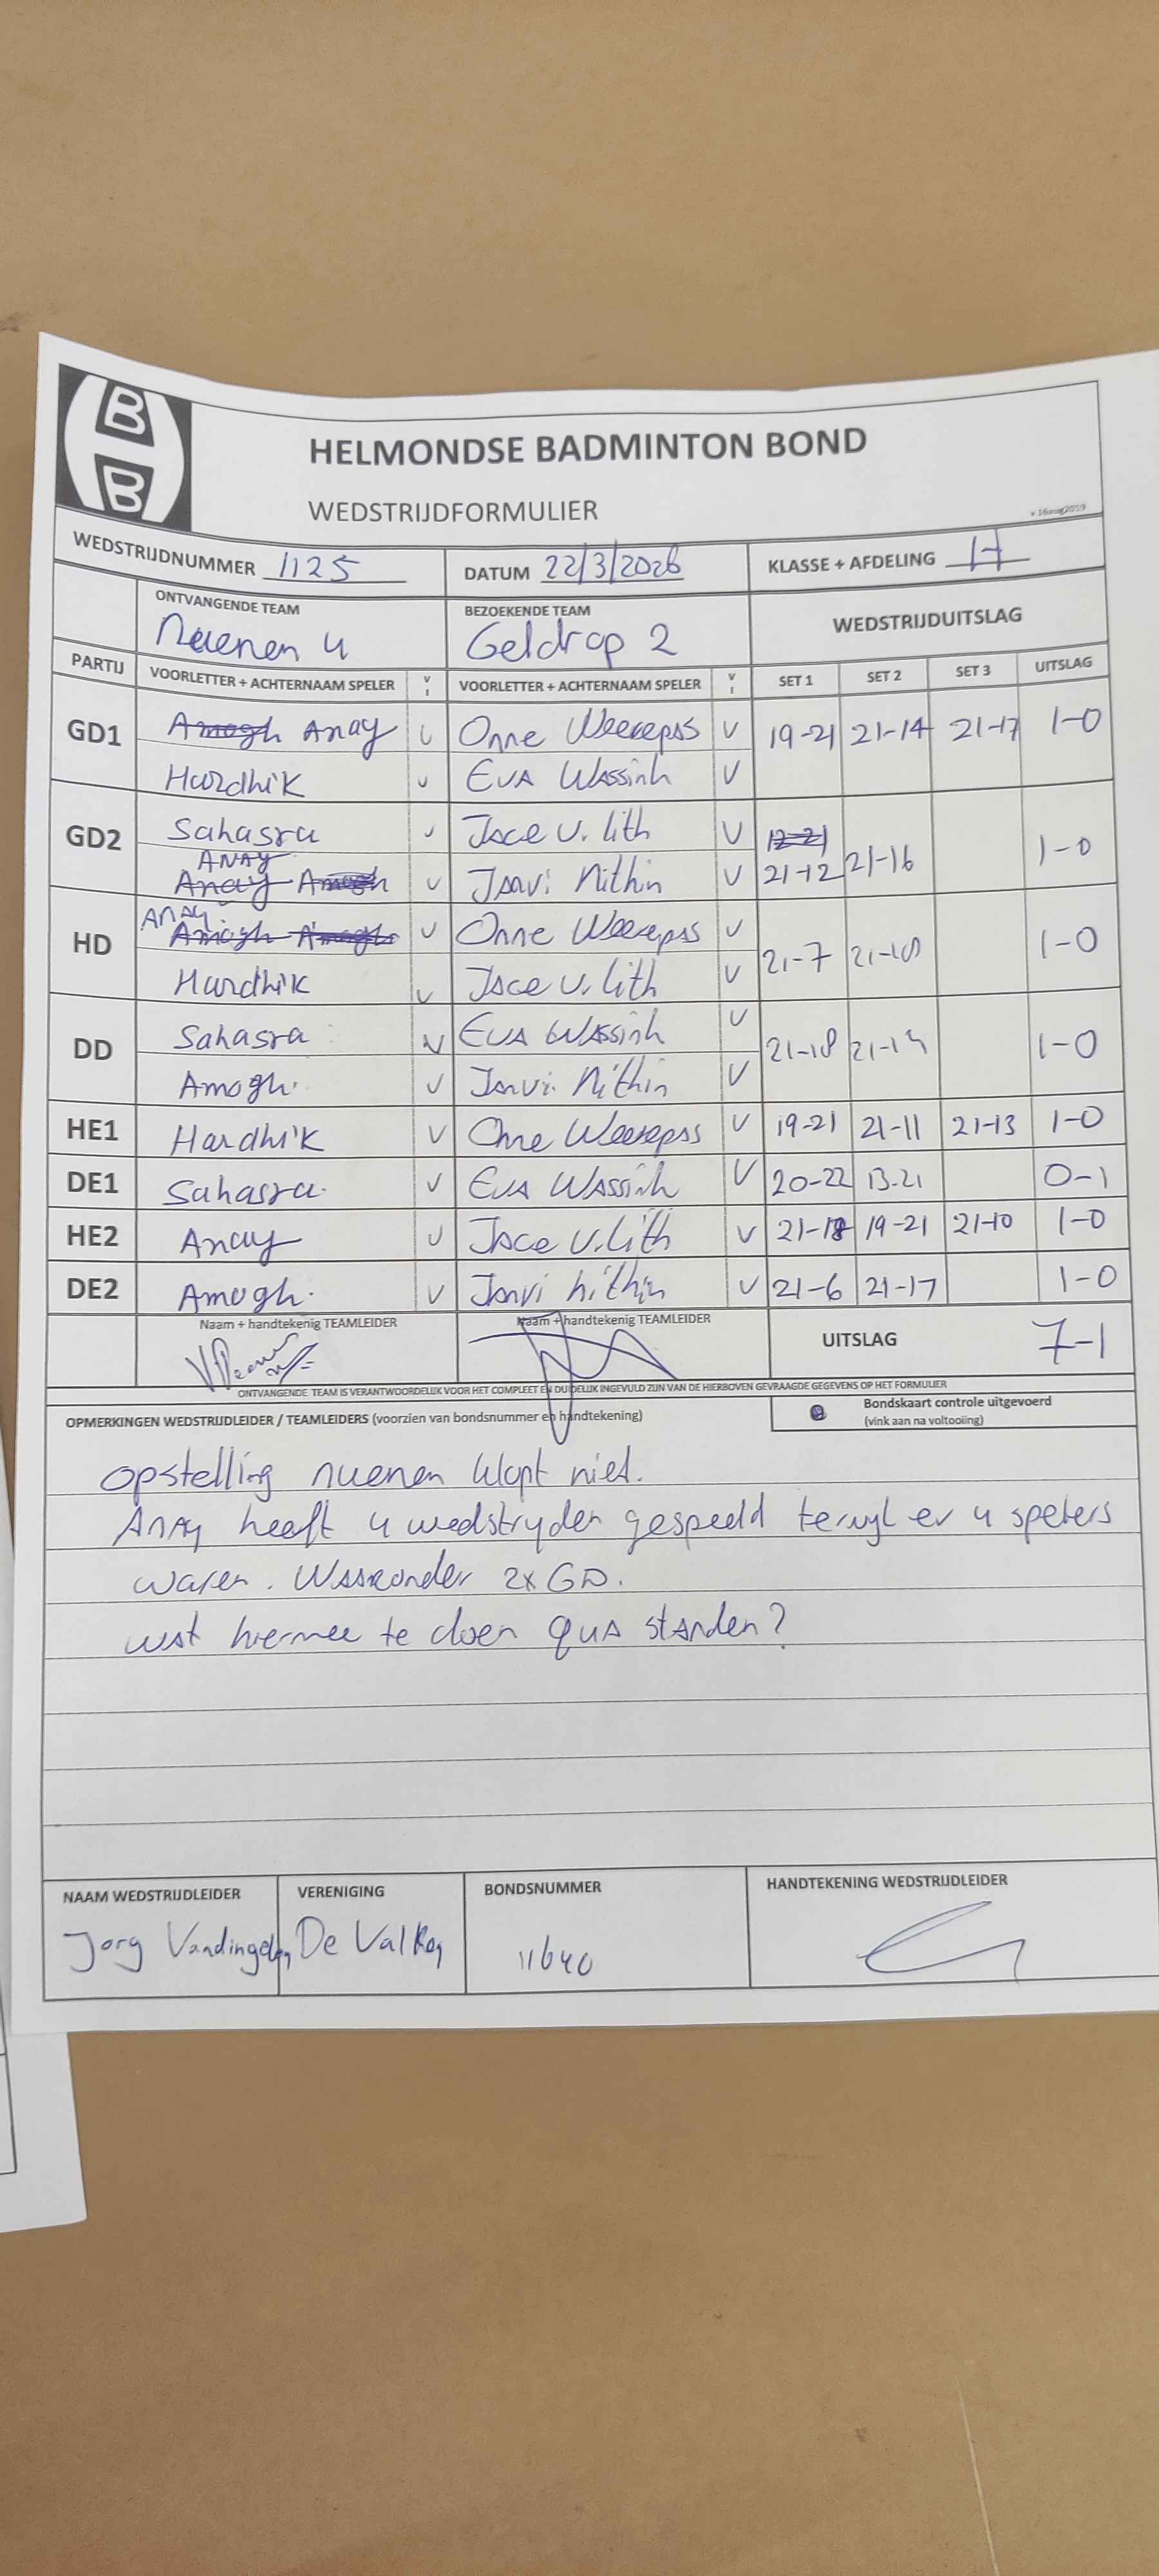 B
B
HELMONDSE BADMINTON BOND
WEDSTRIJDFORMULIER
v 16aug2019
WEDSTRIJDNUMMER 1125 DATUM 22/3/2026 KLASSE + AFDELING
ONTVANGENDE TEAM BEZOEKENDE TEAM WEDSTRIJDUITSLAG
Nuenen 4 Geldrop 2
PARTIJ VOORLETTER + ACHTERNAAM SPELER V I VOORLETTER + ACHTERNAAM SPELER V I SET 1 SET 2 SET 3 UITSLAG
GD1 Amogh Anay V Onne Weerepas V 19-21 21-14 21-17 1-0
Hardhik V EVA WAssink V
GD2 Sahasra V Jace v. lith V 12-21
ANAY
Anay Amogh V Janvi Nithin V 21-12 21-16 1-0
HD ANAY
Amogh Amogh V Onne Weerepas V 21-7 21-10 1-0
Hardhik V Jace v. lith V
DD Sahasra V EVA WAssink V 21-18 1-0
Amogh. V Janvi Nithin V
HE1 Hardhik V Onne Weerepas V 19-21 21-11 21-13 1-0
DE1 Sahasra. V EVA WAssink V 20-22 13-21 0-1
HE2 Anay V Jace v. lith V 21-18 19-21 21-10 1-0
DE2 Amogh. V Janvi nithin V 21-6 21-17 1-0
Naam + handtekenig TEAMLEIDER Naam + handtekenig TEAMLEIDER UITSLAG 7-1
ONTVANGENDE TEAM IS VERANTWOORDELIJK VOOR HET COMPLEET EN DUIDELIJK INGEVULD ZIJN VAN DE HIERBOVEN GEVRAAGDE GEGEVENS OP HET FORMULIER
OPMERKINGEN WEDSTRIJDLEIDER / TEAMLEIDERS (voorzien van bondsnummer en handtekening) Bondskaart controle uitgevoerd
(vink aan na voltooiing)
opstelling nuenen klopt niet.
Anay heeft 4 wedstryden gespeeld terwyl er 4 spelers
waren. Waaronder 2x GD.
wat hiermee te doen qua standen?
NAAM WEDSTRIJDLEIDER VERENIGING BONDSNUMMER HANDTEKENING WEDSTRIJDLEIDER
Jorg De Valken 11640